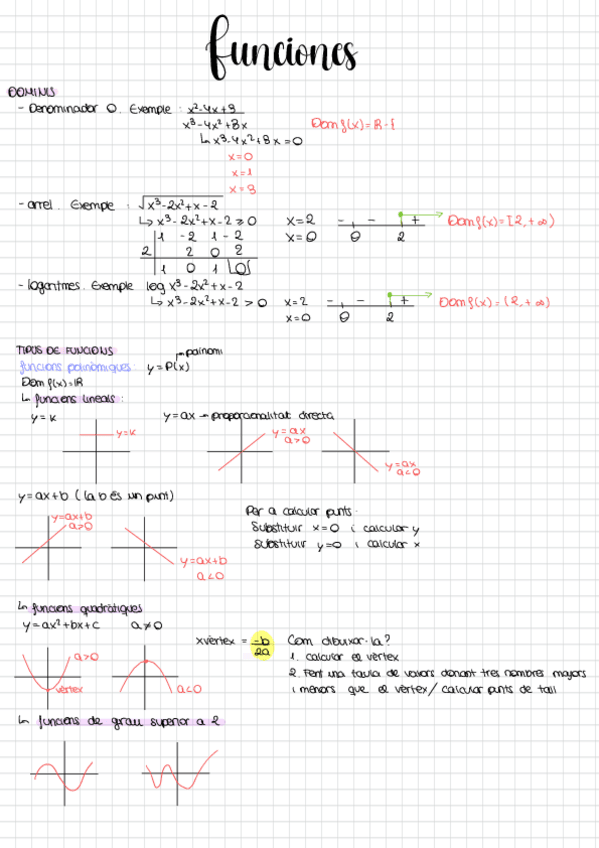 funciones
DOMINIS
- Denominador 0. Exemple: x²-4x+8
x³-4x²+8x
Dom f(x)=R-{
↳ x³-4x²+8x=0
x=0
x=1
x=8
- arrel. Exemple : √x³-2x²+x-2
↳ x³-2x²+x-2 ≥ 0 x=2 - - + Dom f(x)=[2,+∞)
1 -2 1 -2 x=0 0 2
2 2 0 2
1 0 1 |0|
- logaritmes. Exemple log x³-2x²+x-2
↳ x³-2x²+x-2 > 0 x=2 - - + Dom f(x)=(2,+∞)
x=0 0 2
TIPUS DE FUNCIONS
polinomi
funcions polinòmiques: y=P(x)
Dom f(x)=R
↳ funcions lineals:
y=k y=ax → proporcionalitat directa
y=k y=ax
a>0
y=ax
a<0
y=ax+b (la b és un punt)
Per a calcular punts:
y=ax+b
a>0
Substituir x=0 i calcular y
Substituir y=0 i calcular x
y=ax+b
a<0
↳ funcions quadràtiques
y=ax²+bx+c a≠0
xvèrtex = -b
2a
Com dibuixar-la?
a>0 1. calcular el vèrtex
2. Fent una taula de valors donant tres nombres majors
vèrtex a<0 i menors que el vèrtex/ calcular punts de tall
↳ funcions de grau superior a 2